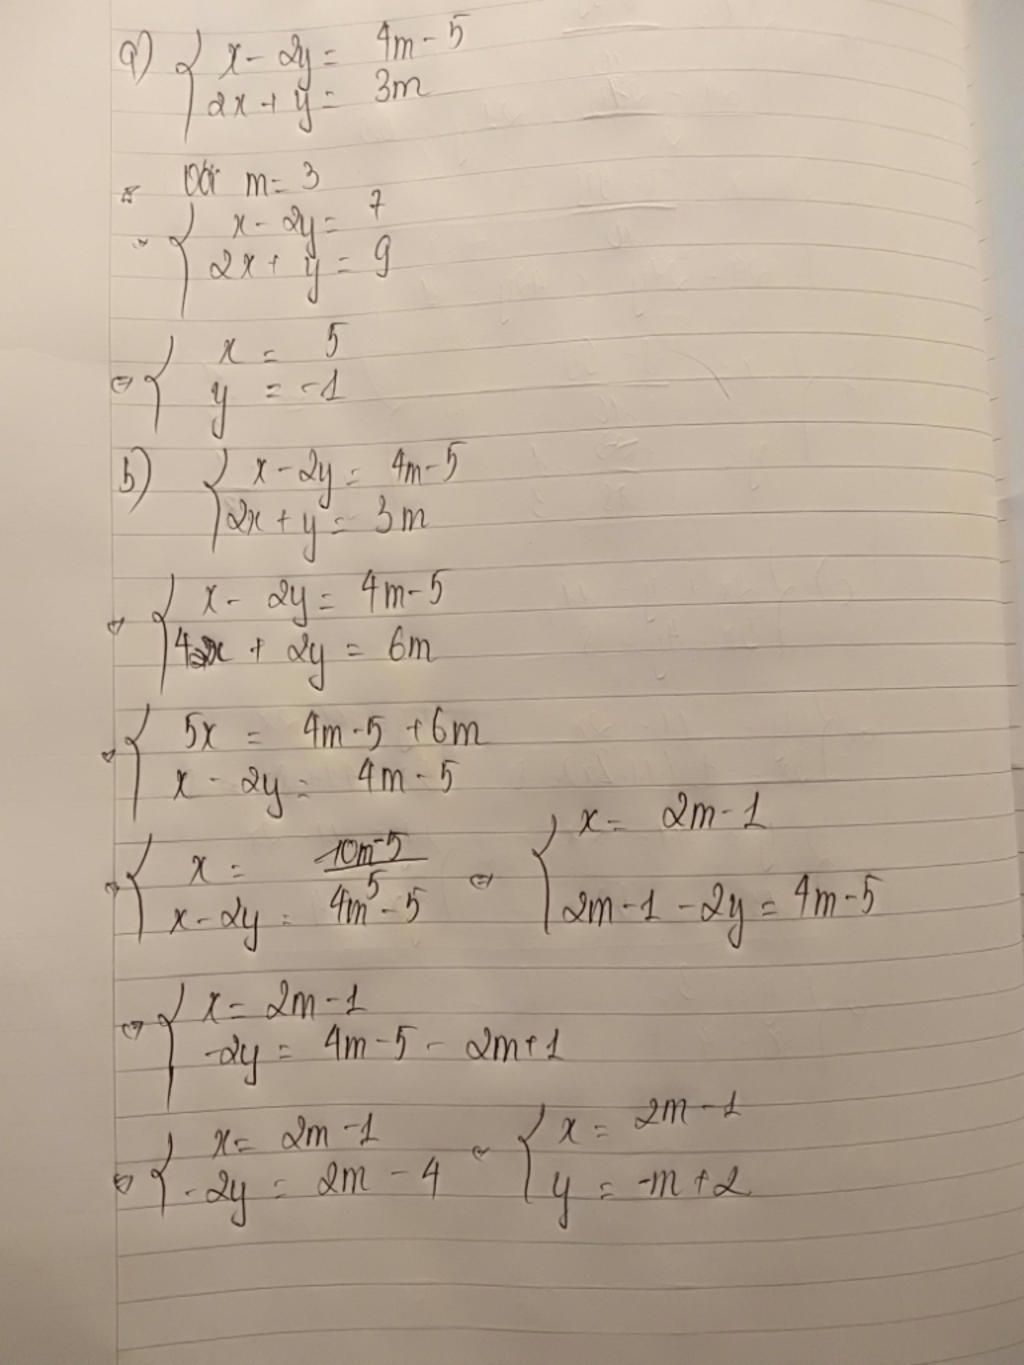 a) { x - 2y = 4m - 5
2x + y = 3m
Với m = 3
{ x - 2y = 7
2x + y = 9
⇔ { x = 5
y = -1
b) { x - 2y = 4m - 5
2x + y = 3m
⇔ { x - 2y = 4m - 5
4x + 2y = 6m
⇔ { 5x = 4m - 5 + 6m
x - 2y = 4m - 5
⇔ { x = (10m - 5)/5 ⇔ { x = 2m - 1
x - 2y = 4m - 5 2m - 1 - 2y = 4m - 5
⇔ { x = 2m - 1
-2y = 4m - 5 - 2m + 1
⇔ { x = 2m - 1 ⇔ { x = 2m - 1
-2y = 2m - 4 y = -m + 2